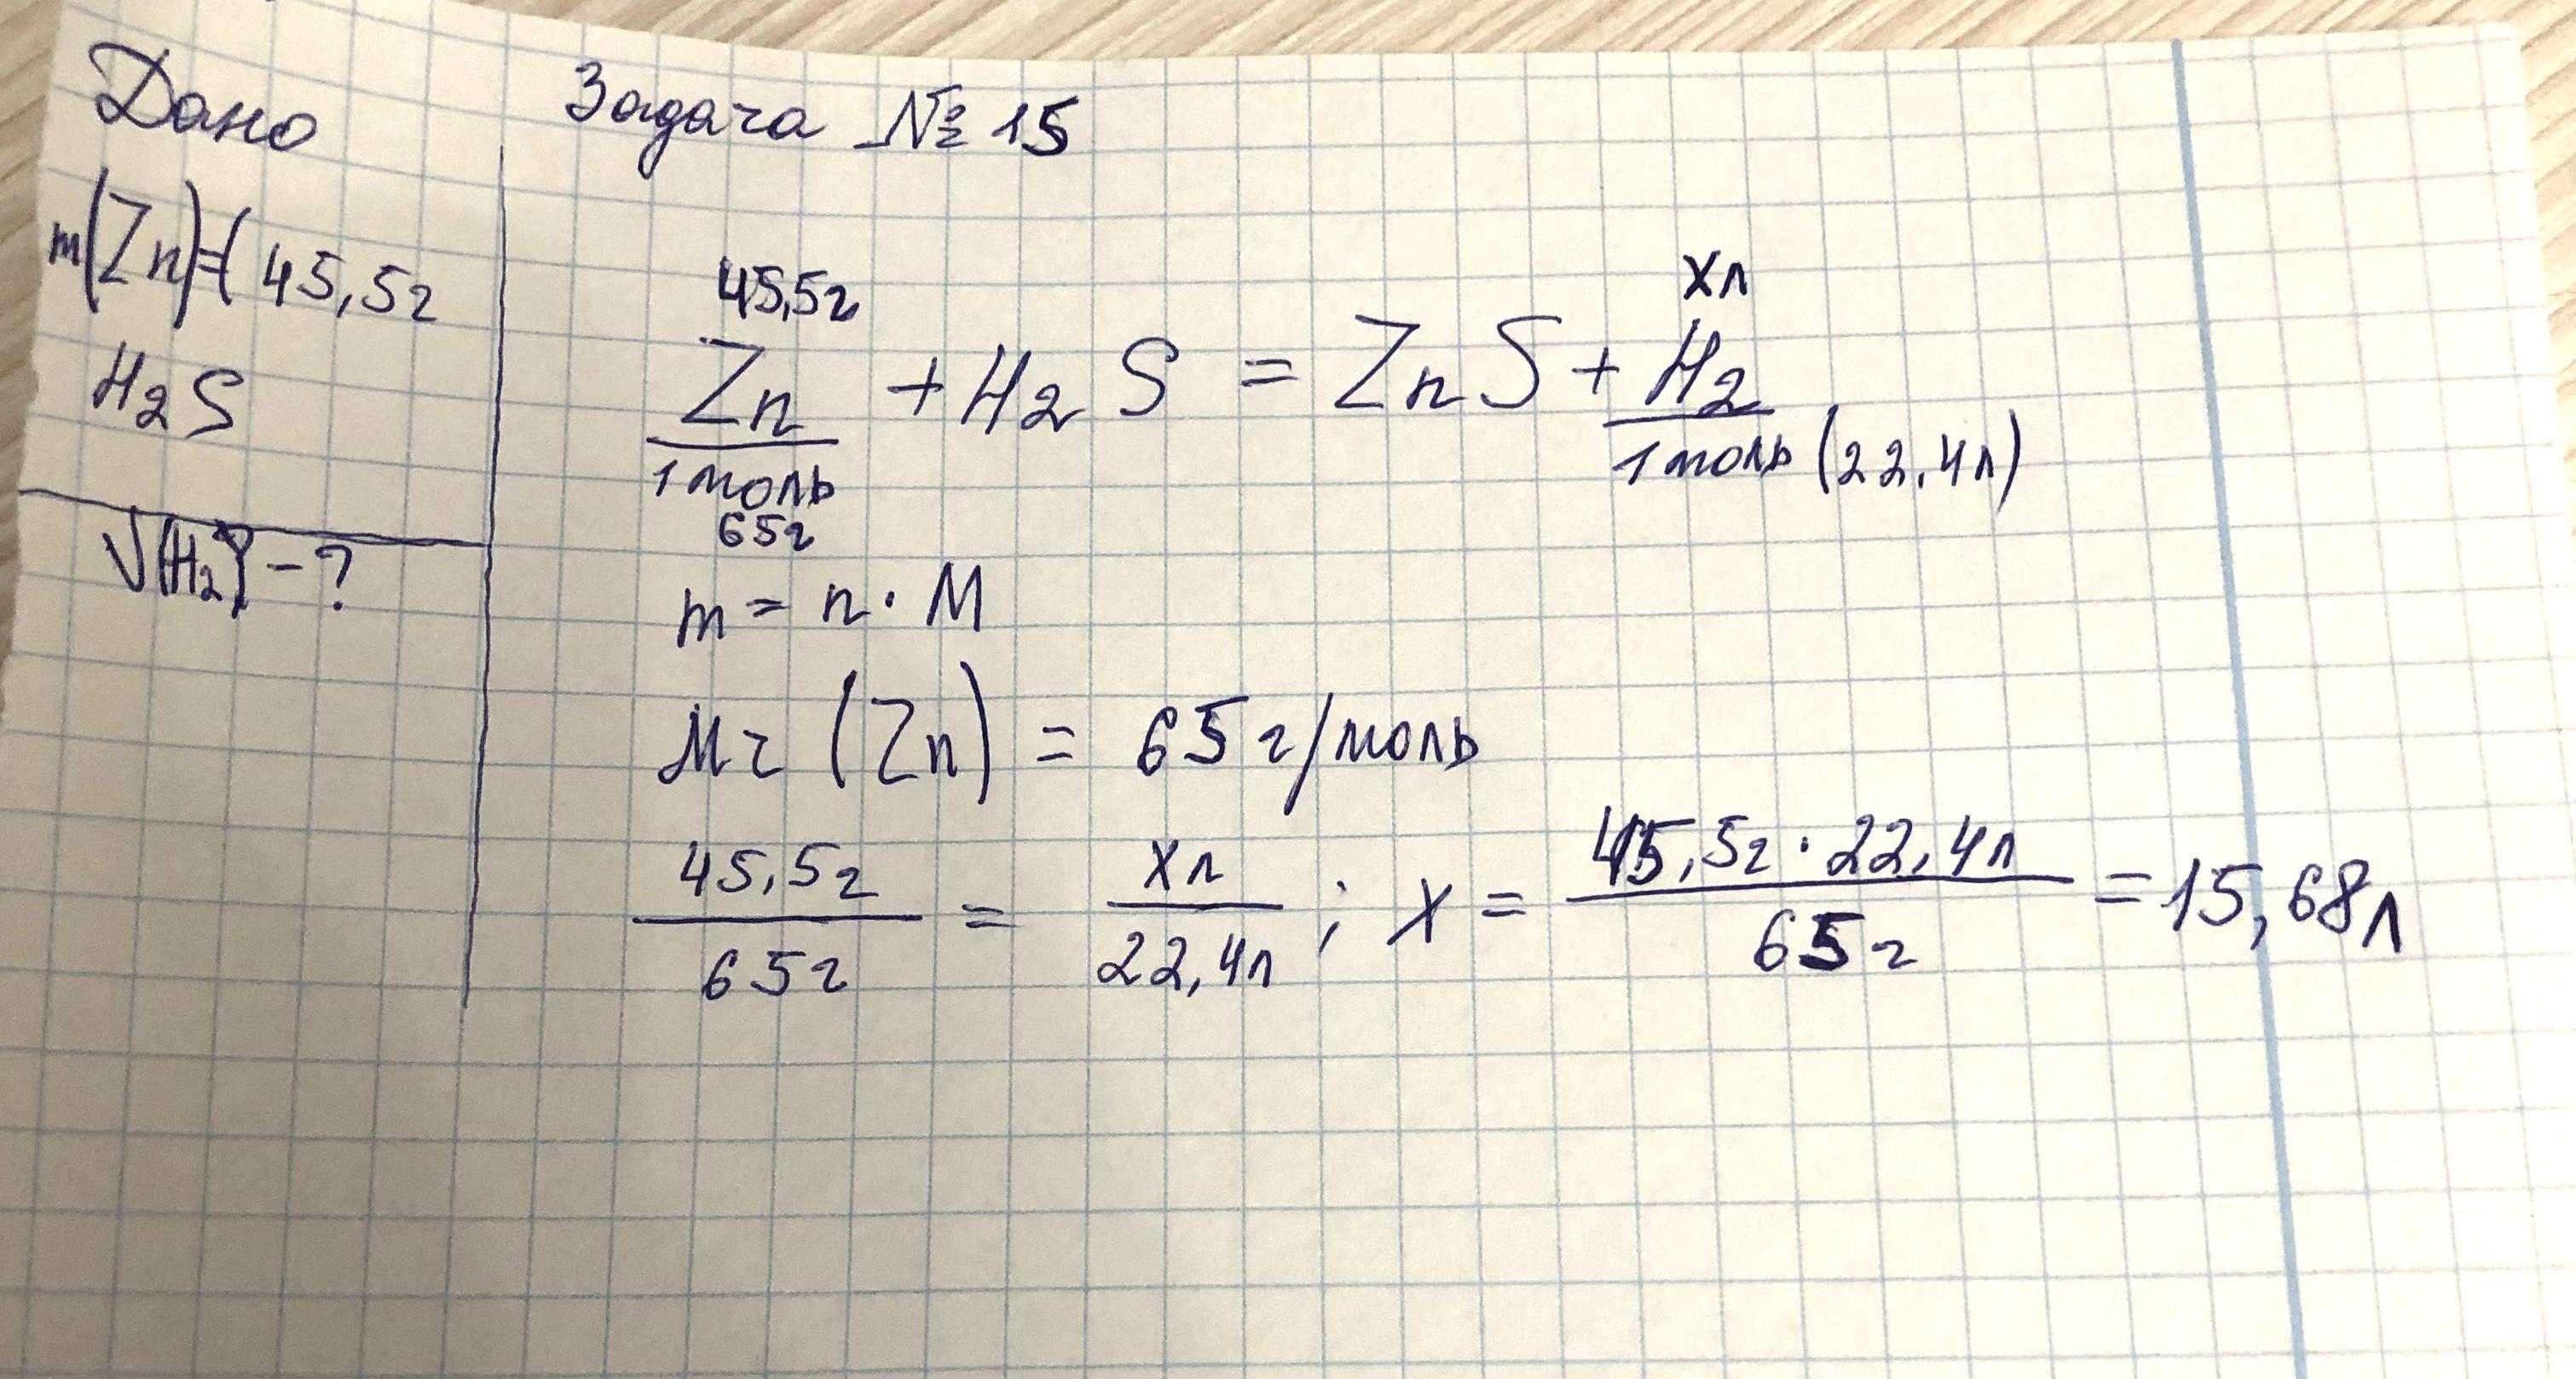 Дано
m(Zn)=(45,5г
H2S
V(H2)-?
Задача №15
45,5г хл
Zn + H2S = ZnS + H2
1 моль 1 моль (22,4л)
65г
m = n · M
Mr (Zn) = 65 г/моль
45,5г/65г = хл/22,4л ; x = 45,5г · 22,4л/65г = 15,68л